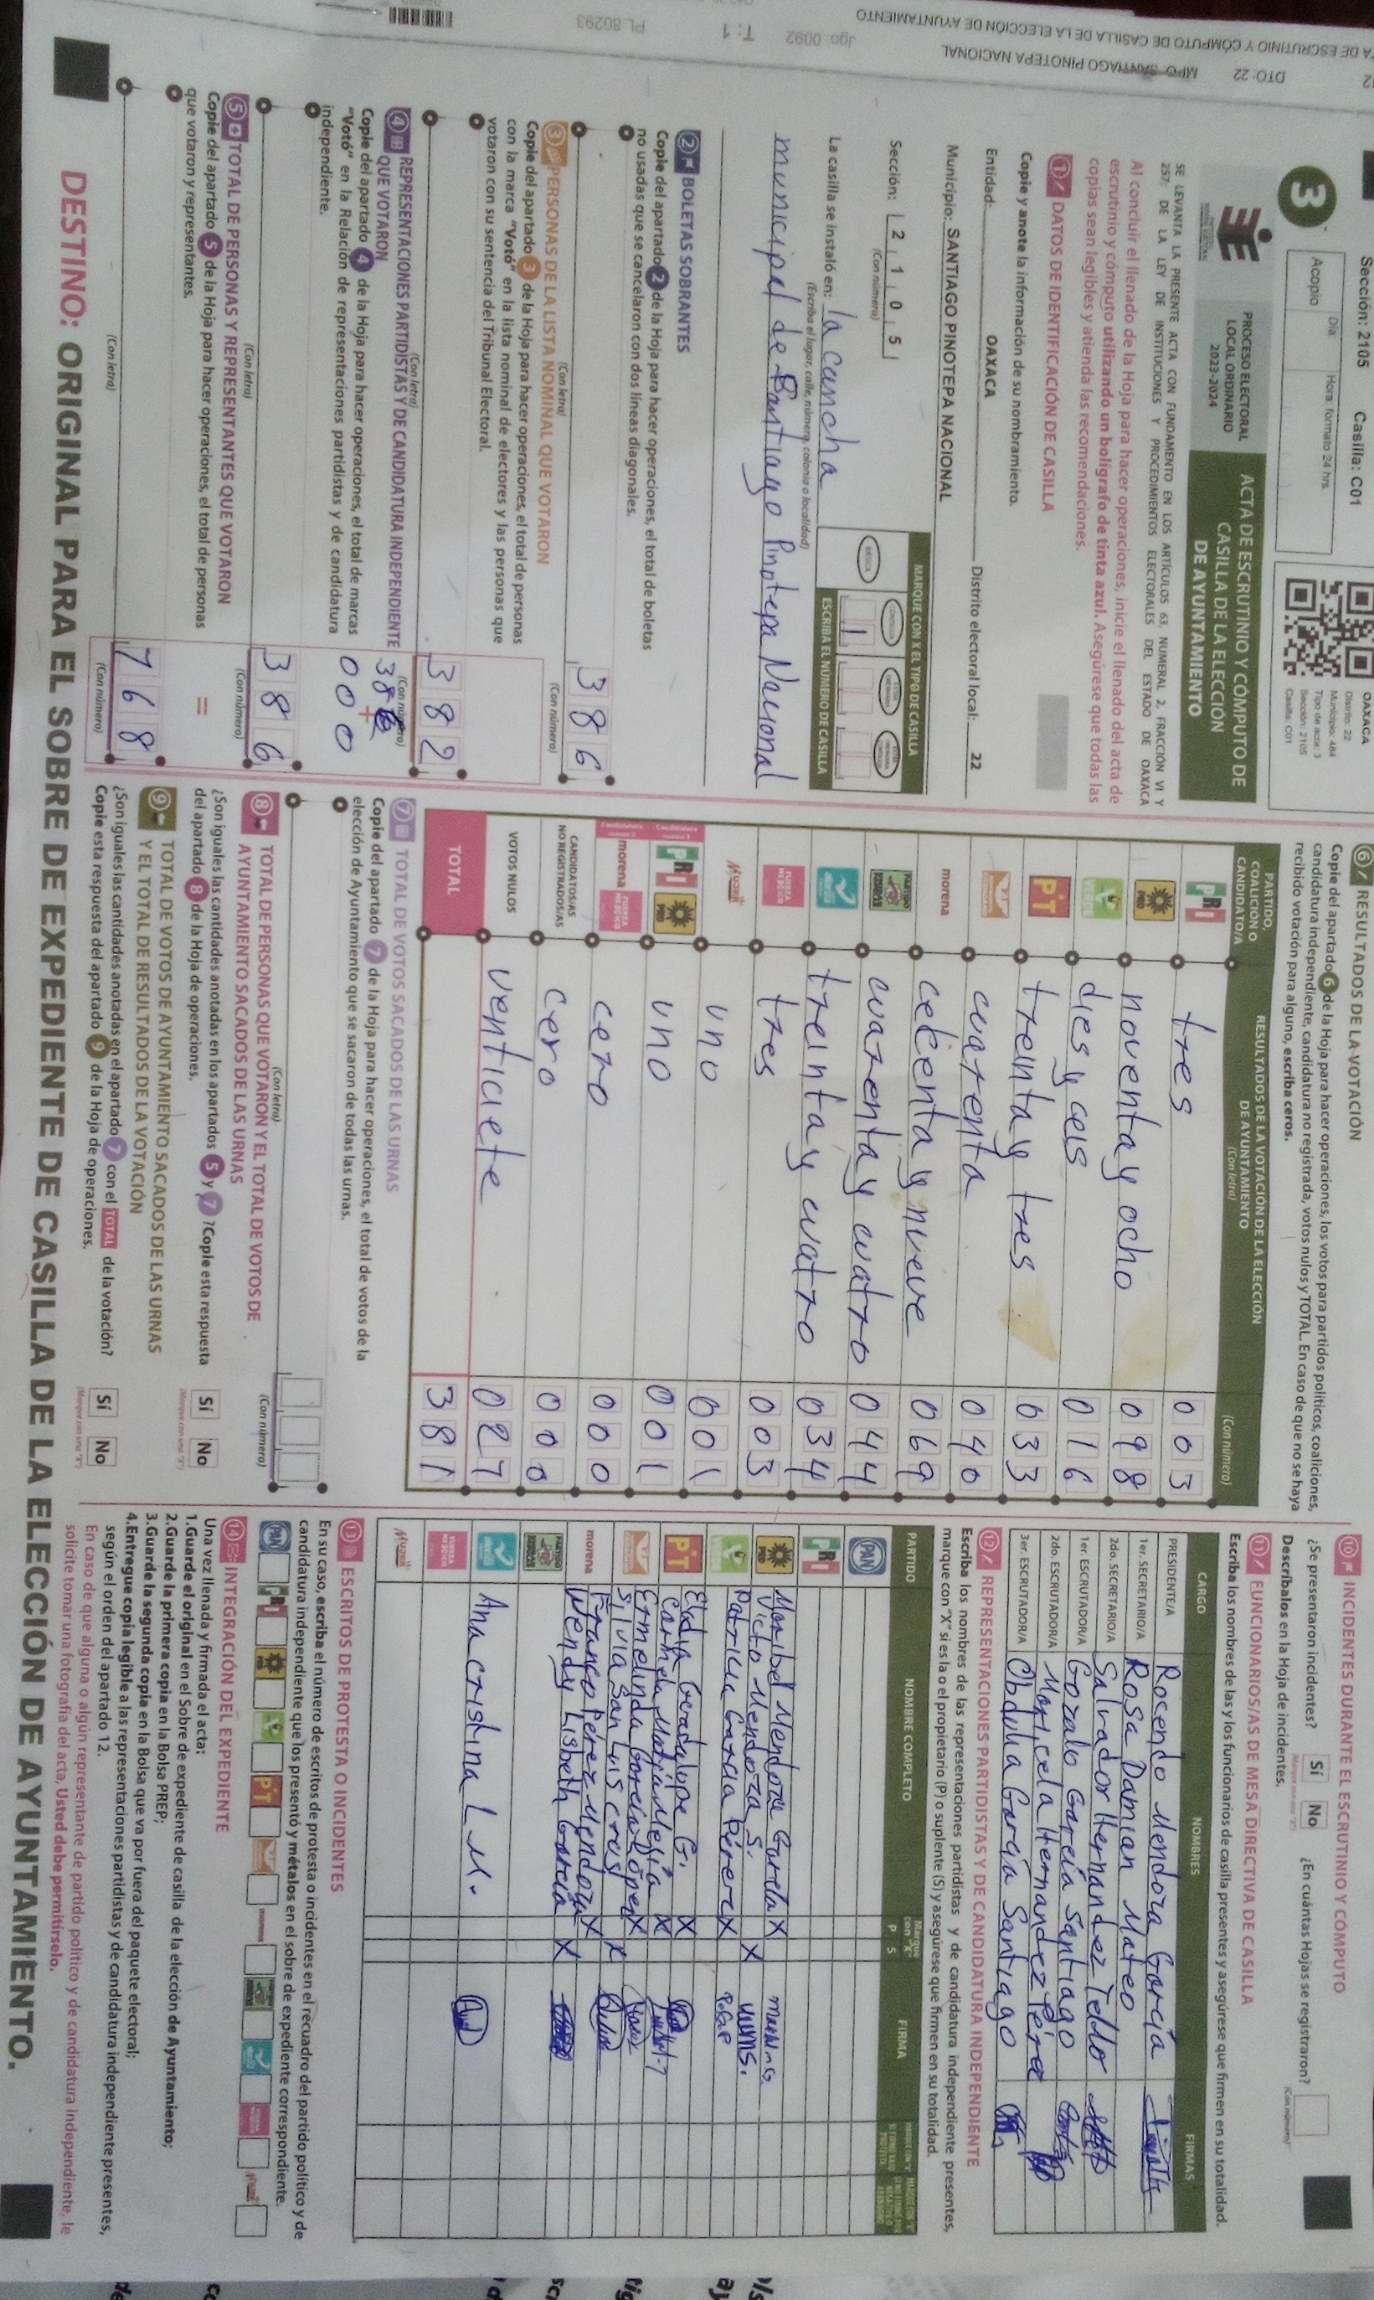 Sección: 2105 Casilla: C01
3
Día Hora: formato 24 hrs.
Acopio
OAXACA
Distrito: 22
Municipio: 484
Tipo de acta: 3
Sección: 2105
Casilla: C01
PROCESO ELECTORAL
LOCAL ORDINARIO
2023-2024
ACTA DE ESCRUTINIO Y CÓMPUTO DE
CASILLA DE LA ELECCIÓN
DE AYUNTAMIENTO
SE LEVANTA LA PRESENTE ACTA CON FUNDAMENTO EN LOS ARTÍCULOS 63, NUMERAL 2, FRACCIÓN VI Y
257; DE LA LEY DE INSTITUCIONES Y PROCEDIMIENTOS ELECTORALES DEL ESTADO DE OAXACA
Al concluir el llenado de la Hoja para hacer operaciones, inicie el llenado del acta de
escrutinio y cómputo utilizando un bolígrafo de tinta azul. Asegúrese que todas las
copias sean legibles y atienda las recomendaciones.
1 DATOS DE IDENTIFICACIÓN DE CASILLA
Copie y anote la información de su nombramiento.
Entidad: OAXACA Distrito electoral local: 22
Municipio: SANTIAGO PINOTEPA NACIONAL
Sección: 2 1 0 5
(Con número)
MARQUE CON X EL TIPO DE CASILLA
BÁSICA
1
ESCRIBA EL NÚMERO DE CASILLA
La casilla se instaló en: la cancha
(Escriba el lugar, calle, número, colonia o localidad)
municipal de Santiago Pinotepa Nacional
2 BOLETAS SOBRANTES
Copie del apartado 2 de la Hoja para hacer operaciones, el total de boletas
no usadas que se cancelaron con dos líneas diagonales.
386
(Con letra) (Con número)
3 PERSONAS DE LA LISTA NOMINAL QUE VOTARON
Copie del apartado 3 de la Hoja para hacer operaciones, el total de personas
con la marca "Votó" en la lista nominal de electores y las personas que
votaron con su sentencia del Tribunal Electoral.
382
(Con letra) (Con número)
4 REPRESENTACIONES PARTIDISTAS Y DE CANDIDATURA INDEPENDIENTE
QUE VOTARON
Copie del apartado 4 de la Hoja para hacer operaciones, el total de marcas
"Votó" en la Relación de representaciones partidistas y de candidatura
independiente.
000
386
(Con letra) (Con número)
5 TOTAL DE PERSONAS Y REPRESENTANTES QUE VOTARON
Copie del apartado 5 de la Hoja para hacer operaciones, el total de personas
que votaron y representantes.
=
768
(Con letra) (Con número)
6 RESULTADOS DE LA VOTACIÓN
Copie del apartado 6 de la Hoja para hacer operaciones, los votos para partidos políticos, coaliciones,
candidatura independiente, candidatura no registrada, votos nulos y TOTAL. En caso de que no se haya
recibido votación para alguno, escriba ceros.
PARTIDO, COALICIÓN O CANDIDATO/A
RESULTADOS DE LA VOTACIÓN DE LA ELECCIÓN
DE AYUNTAMIENTO
(Con letra) (Con número)
PRI tres 003
PRD noventa y ocho 098
VERDE dies y ceis 016
PT treinta y tres 033
cuarenta 040
morena cecenta y nueve 069
PARTIDO cuarenta y cuatro 044
treinta y cuatro 034
FUERZA MÉXICO tres 003
MUJER uno 001
PRI PRD uno 001
morena FUERZA MÉXICO cero 000
CANDIDATOS/AS NO REGISTRADOS/AS cero 000
VOTOS NULOS venticiete 027
TOTAL 381
7 TOTAL DE VOTOS SACADOS DE LAS URNAS
Copie del apartado 7 de la Hoja para hacer operaciones, el total de votos de la
elección de Ayuntamiento que se sacaron de todas las urnas.
(Con letra) (Con número)
8 TOTAL DE PERSONAS QUE VOTARON Y EL TOTAL DE VOTOS DE
AYUNTAMIENTO SACADOS DE LAS URNAS
¿Son iguales las cantidades anotadas en los apartados 5 y 7? Copie esta respuesta
del apartado 8 de la Hoja de operaciones.
Sí No
9 TOTAL DE VOTOS DE AYUNTAMIENTO SACADOS DE LAS URNAS
Y EL TOTAL DE RESULTADOS DE LA VOTACIÓN
¿Son iguales las cantidades anotadas en el apartado 7 con el TOTAL de la votación?
Copie esta respuesta del apartado 9 de la Hoja de operaciones.
Sí No
10 INCIDENTES DURANTE EL ESCRUTINIO Y CÓMPUTO
¿Se presentaron incidentes? Sí No ¿En cuántas Hojas se registraron?
Descríbalos en la Hoja de incidentes. (Con número)
11 FUNCIONARIOS/AS DE MESA DIRECTIVA DE CASILLA
Escriba los nombres de las y los funcionarios de casilla presentes y asegúrese que firmen en su totalidad.
CARGO NOMBRES FIRMAS
PRESIDENTE/A Rocendo Mendoza García
1er. SECRETARIO/A Rosa Damian Mateo
2do. SECRETARIO/A Salvador Hernandez Tello
1er. ESCRUTADOR/A Gozalo García Santiago
2do. ESCRUTADOR/A Maricela Hernandez Pérez
3er. ESCRUTADOR/A Obdulia García Santiago
12 REPRESENTACIONES PARTIDISTAS Y DE CANDIDATURA INDEPENDIENTE
Escriba los nombres de las representaciones partidistas y de candidatura independiente presentes,
marque con "X" si es la o el propietario (P) o suplente (S) y asegúrese que firmen en su totalidad.
PARTIDO NOMBRE COMPLETO Marque con "X" P S FIRMA
PAN
PRI
PRD Maribel Mendoza Garcia X
Victo Mendoza S. X
VERDE Patricia Garcia Pérez X P.G.P
PT Eladia Guadalupe G. X
Carmela Mejía X
Ermelinda García López X
Silvia San Luis Cruz X
morena Franco Pérez Mendoza X
Wendy Lisbeth García X
PARTIDO
Ana Cristina L M.
FUERZA MÉXICO
MUJER
13 ESCRITOS DE PROTESTA O INCIDENTES
En su caso, escriba el número de escritos de protesta o incidentes en el recuadro del partido político y de
candidatura independiente que los presentó y métalos en el sobre de expediente correspondiente.
PAN PRI PRD VERDE PT morena
14 INTEGRACIÓN DEL EXPEDIENTE
Una vez llenada y firmada el acta:
1.Guarde el original en el Sobre de expediente de casilla de la elección de Ayuntamiento;
2.Guarde la primera copia en la Bolsa PREP;
3.Guarde la segunda copia en la Bolsa que va por fuera del paquete electoral;
4.Entregue copia legible a las representaciones partidistas y de candidatura independiente presentes,
según el orden del apartado 12.
En caso de que alguna o algún representante de partido político y de candidatura independiente, le
solicite tomar una fotografía del acta, Usted debe permitírselo.
DESTINO: ORIGINAL PARA EL SOBRE DE EXPEDIENTE DE CASILLA DE LA ELECCIÓN DE AYUNTAMIENTO.
DTO: 22 MPO. SANTIAGO PINOTEPA NACIONAL
TA DE ESCRUTINIO Y CÓMPUTO DE CASILLA DE LA ELECCIÓN DE AYUNTAMIENTO
Jgo 0092 T: 1 PL.80293